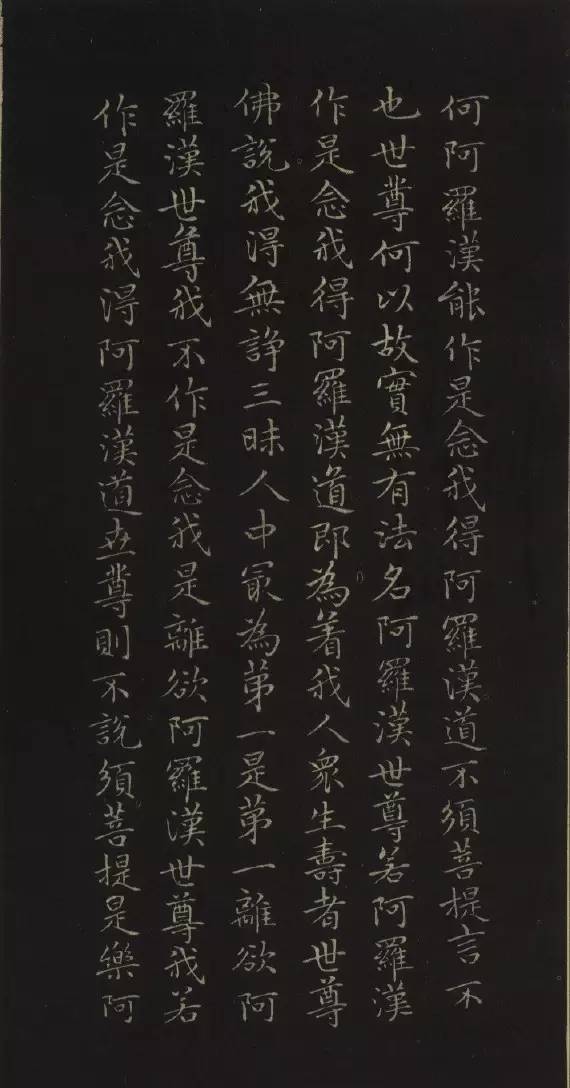 何阿羅漢能作是念我得阿羅漢道不須菩提言不
也世尊何以故實無有法名阿羅漢世尊若阿羅漢
作是念我得阿羅漢道即為着我人衆生壽者世尊
佛說我得無諍三昧人中冣為第一是第一離欲阿
羅漢世尊我不作是念我是離欲阿羅漢世尊我若
作是念我得阿羅漢道世尊則不說須菩提是樂阿